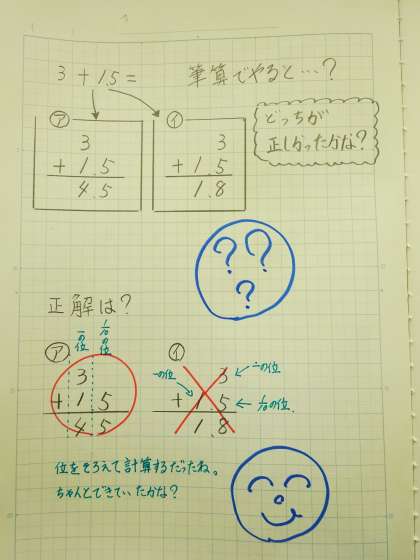 3 + 1.5 =
筆算でやると…?
ア
3
+ 1.5
4.5
イ
3
+ 1.5
1.8
どっちが
正しかったかな?
? ? ?
正解は?
ア
一の位
1/10の位
3
+ 1.5
4.5
イ
一の位
3 ← 一の位
+ 1.5 ← 1/10の位
1.8
位をそろえて計算するだったね。
ちゃんとできていたかな?